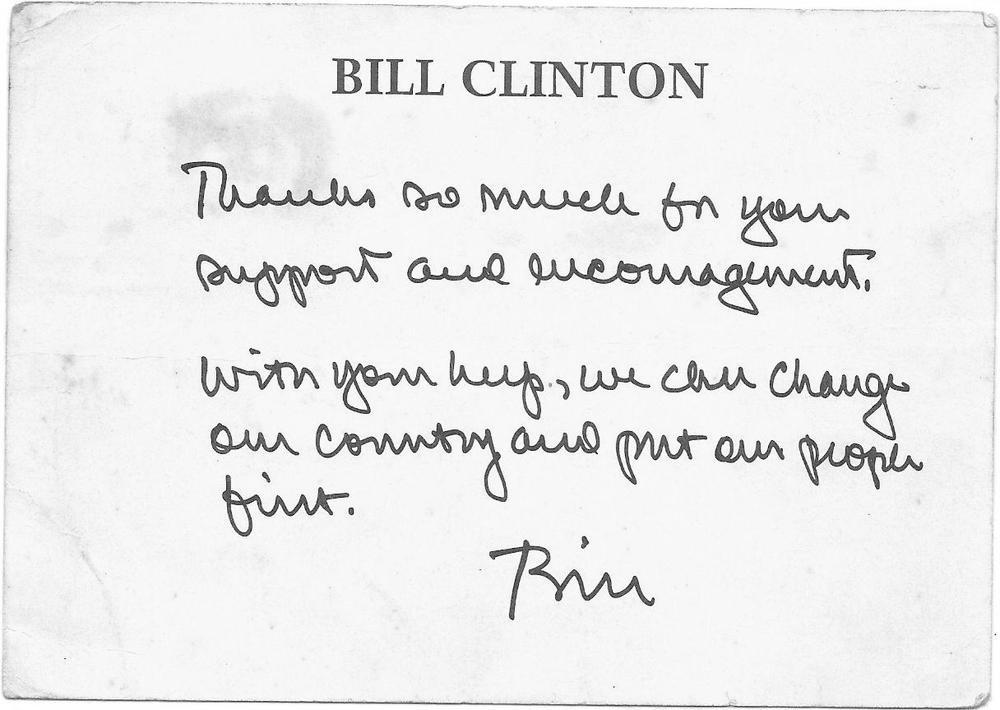 BILL CLINTON
Thanks so much for your
support and encouragement.
With your help, we can change
our country and put our people
first.
Bill